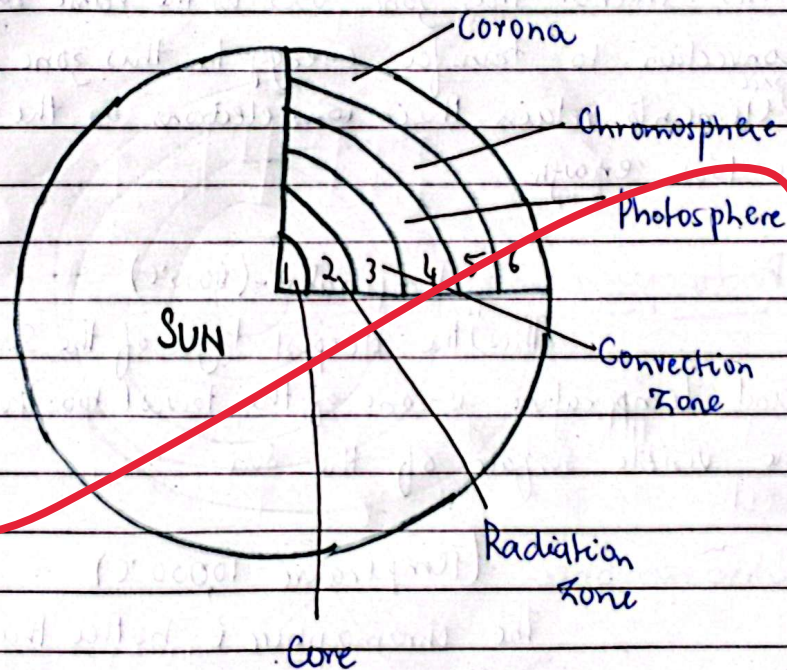 Corona
Chromosphere
Photosphere
1 2 3 4 5 6
SUN
Convection
Zone
Radiation
Zone
Core